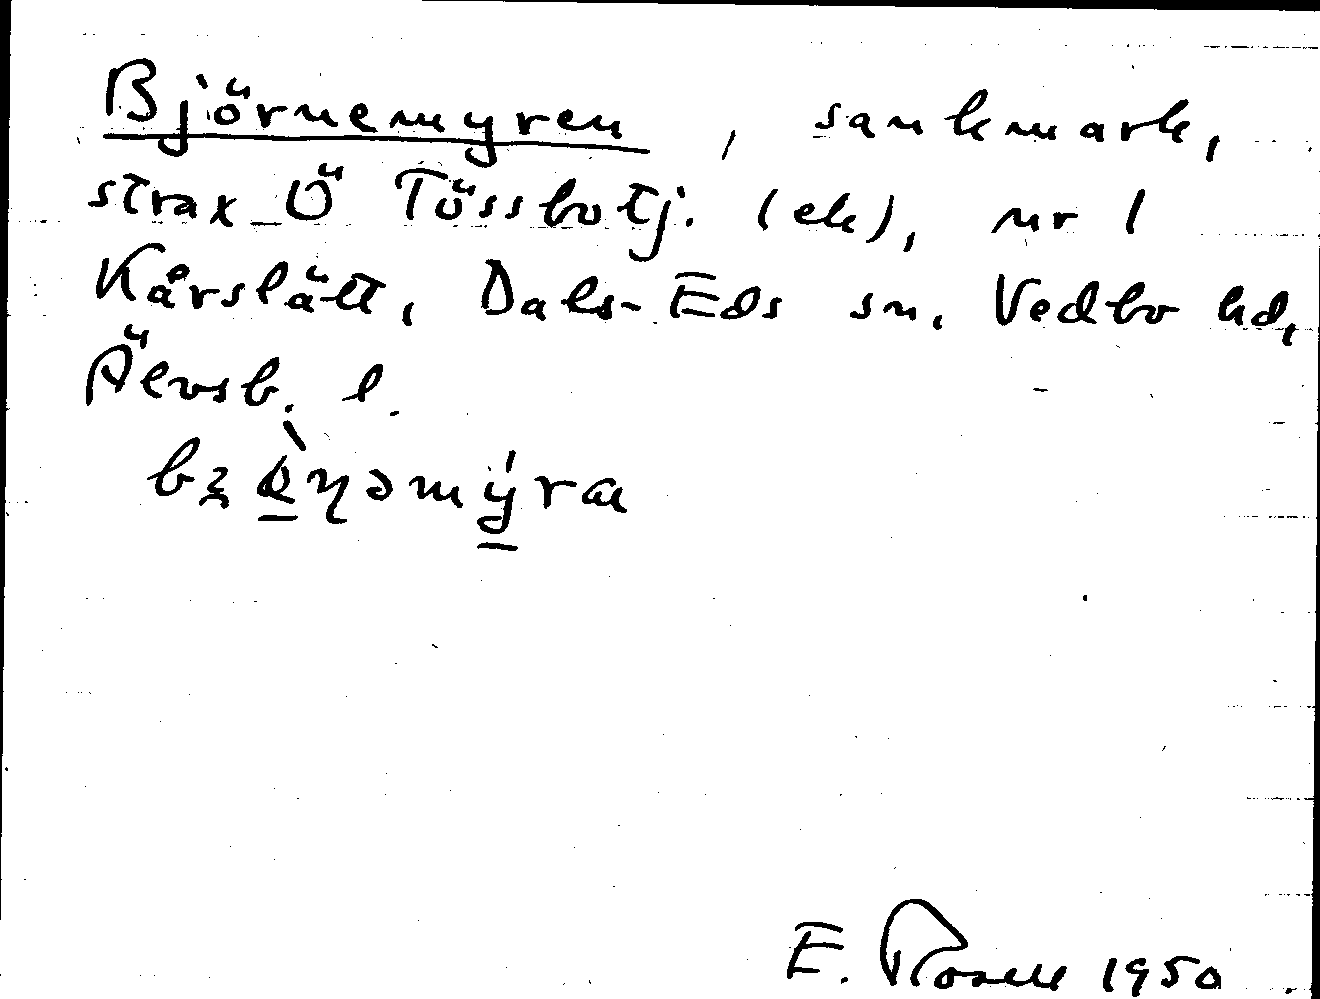 Björnemyren, sankmark,
strax Ö Tössbotj. (ek), nr 1
Kårslätt, Dals-Eds sn, Vedbo hd,
Älvsb. l.
E. Rosell 1950